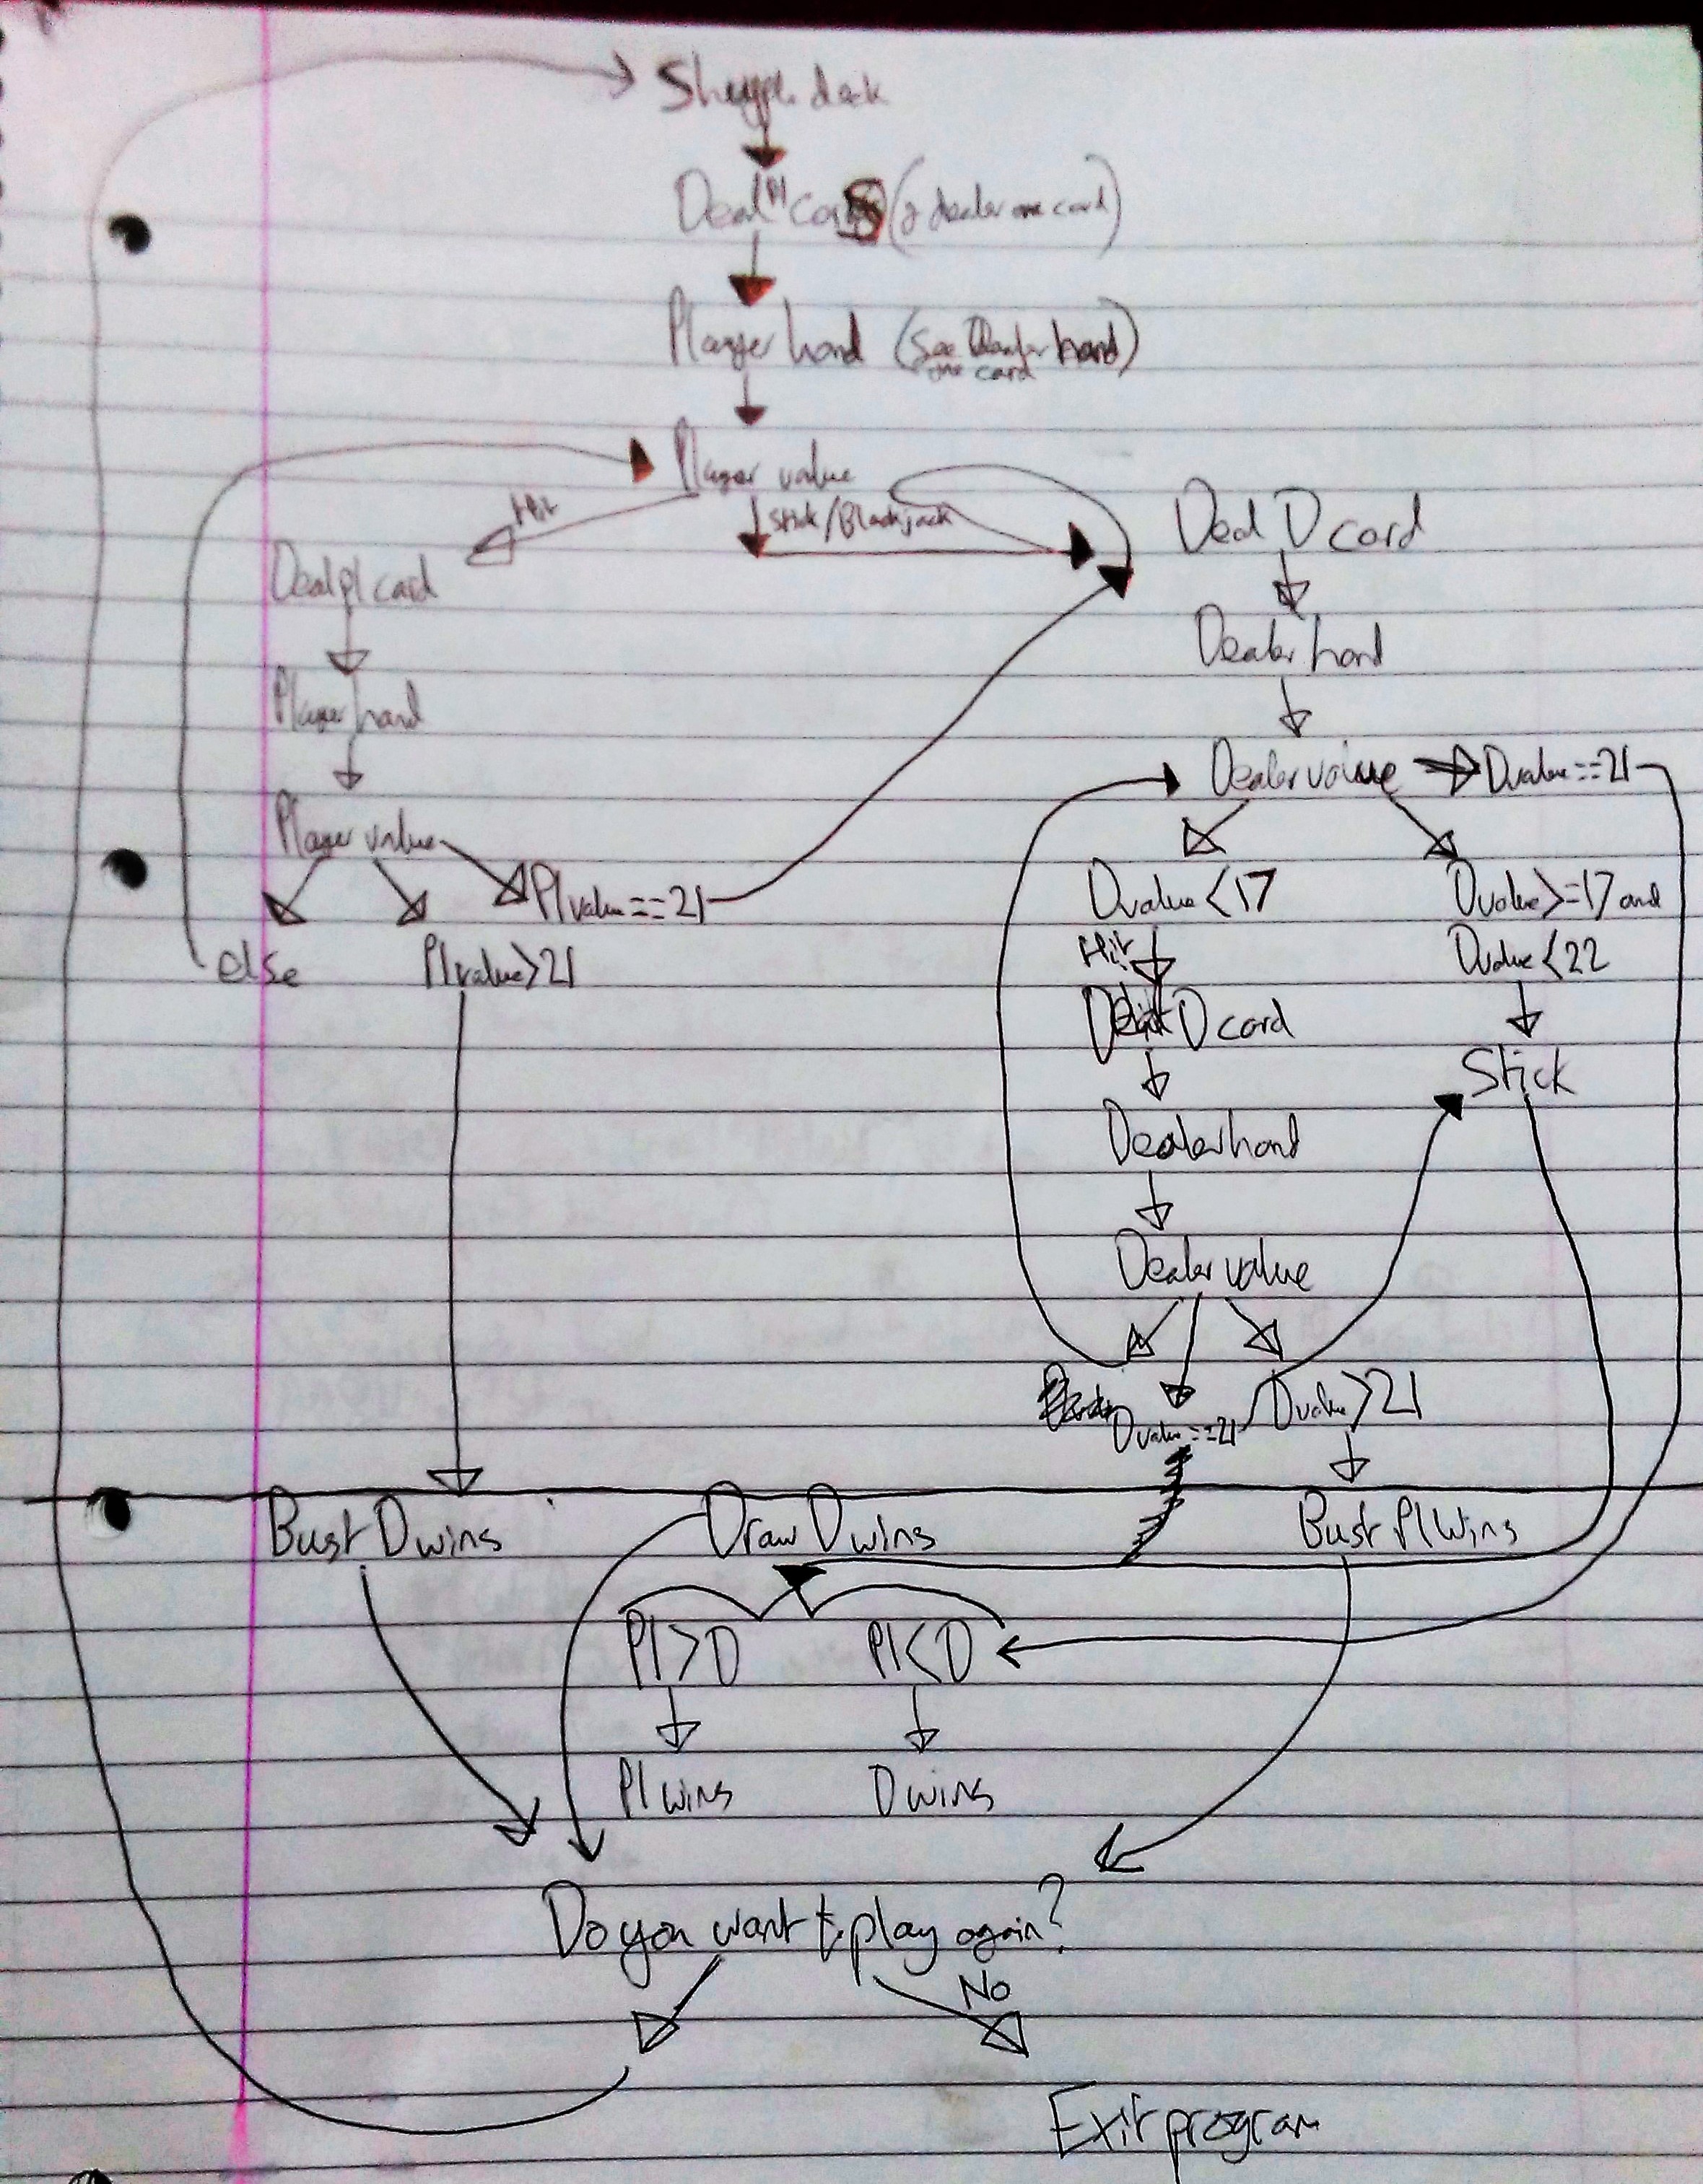 Shuffle deck
Deal Pl cards (& dealer one card)
Player hand (See Dealer hand)
one card
Player value
Hit
Stick/Blackjack
Deal D card
Deal pl card
Dealer hand
Player hand
Dealer value
Dvalue==21
Player value
Plvalue==21
Dvalue<17
Dvalue>=17 and
else
Plvalue>21
Hit
Dvalue<22
D card
Stick
Dealer hand
Dealer value
Dvalue==21
Dvalue>21
Bust D wins
Draw D wins
Bust Pl wins
Pl>D
Pl<D
Pl wins
D wins
Do you want to play again?
No
Exit program